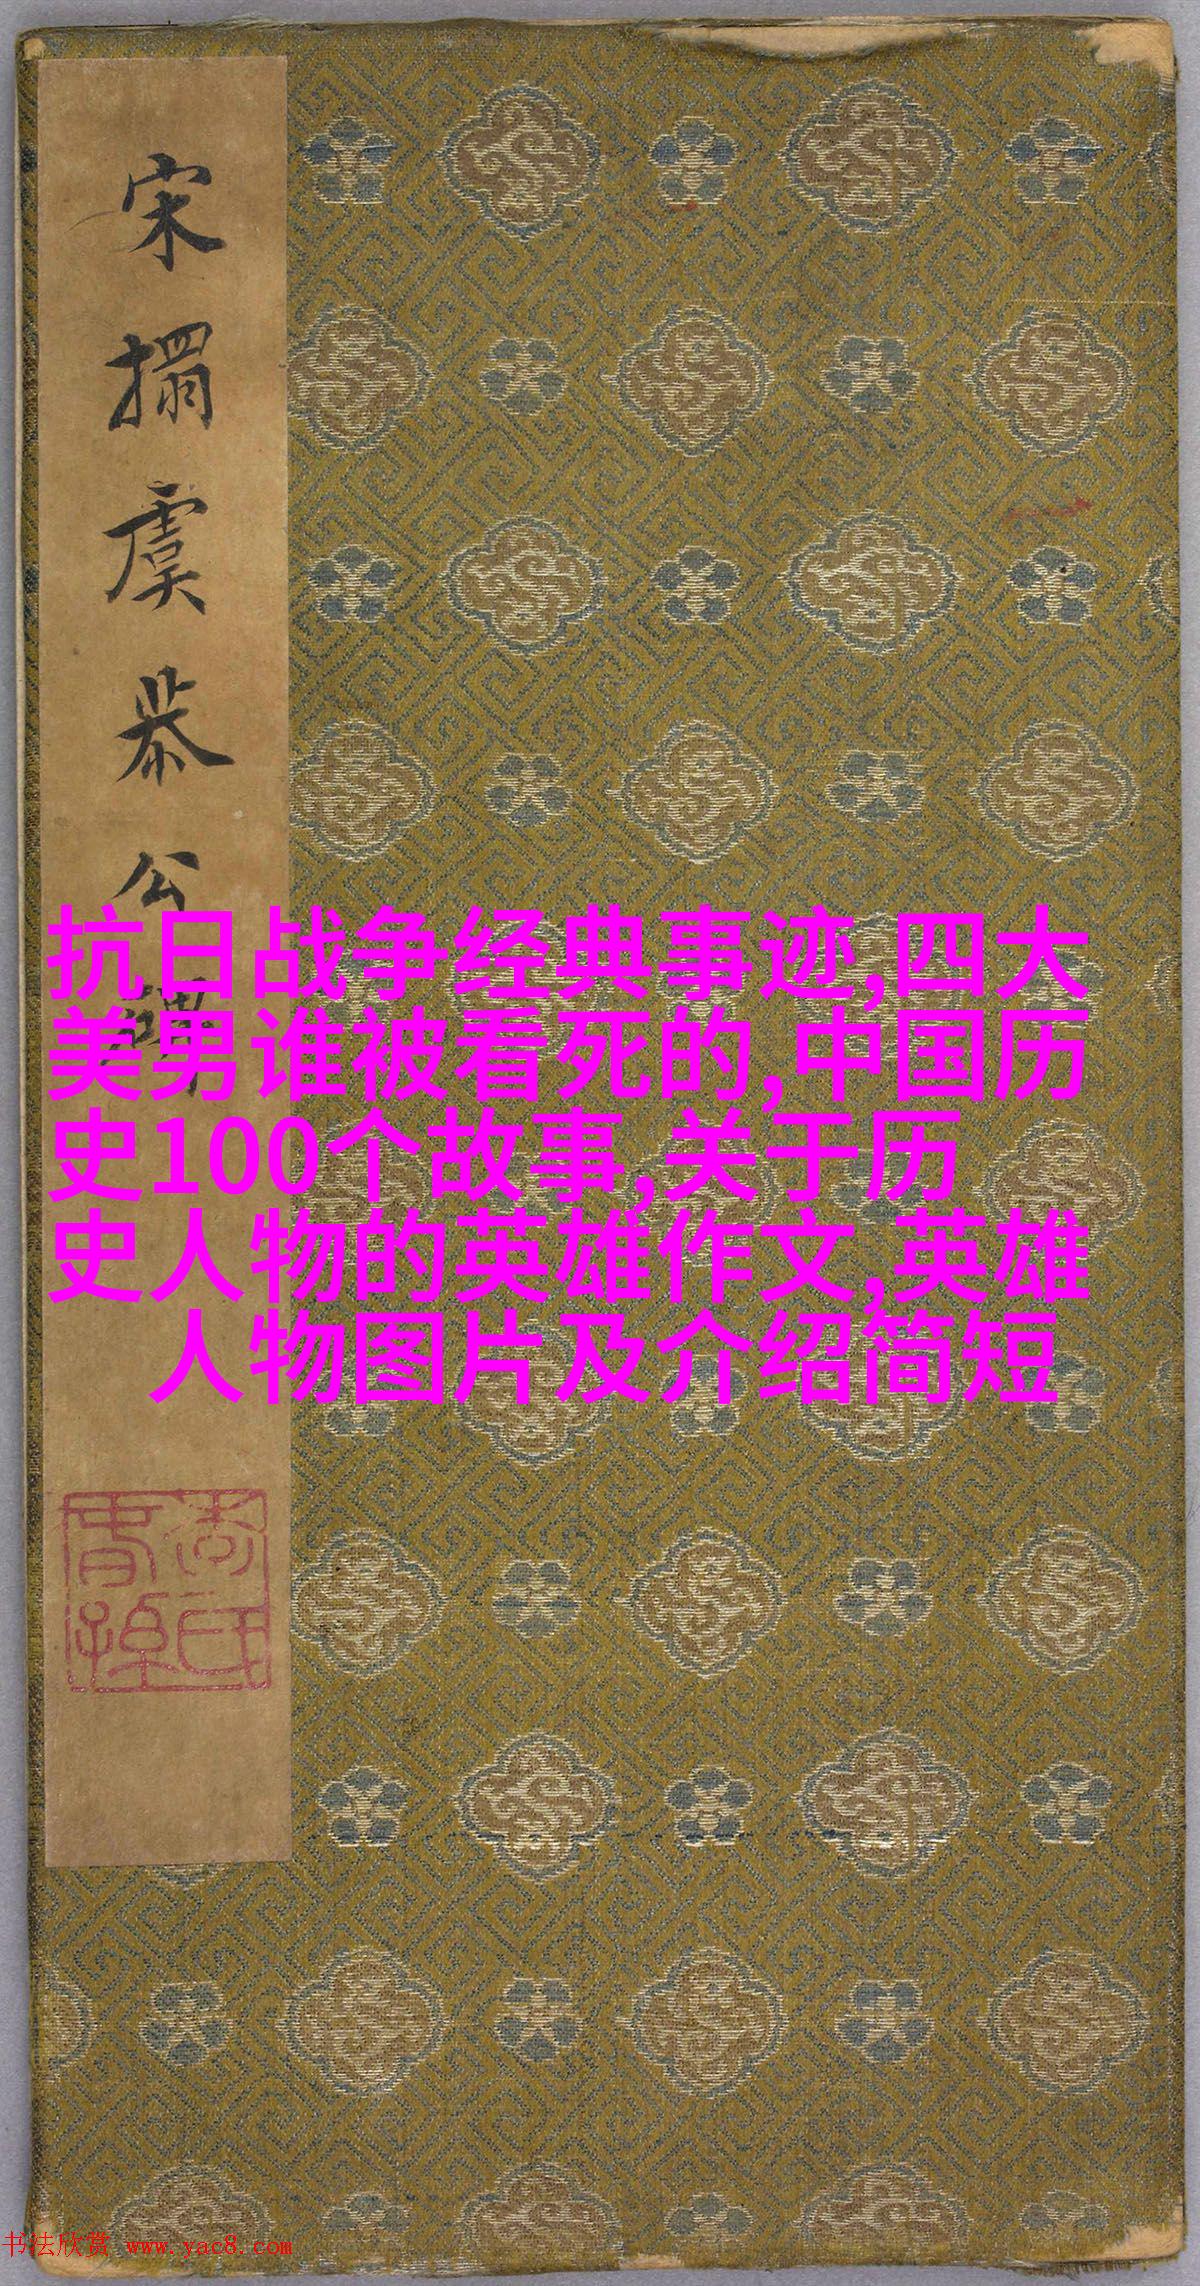 宋搨虞恭公碑
抗日战争经典事迹,四大
美男谁被看死的,中国历
史100个故事,关于历
史人物的英雄作文,英雄
人物图片及介绍简短
书法欣赏 www.yac8.com